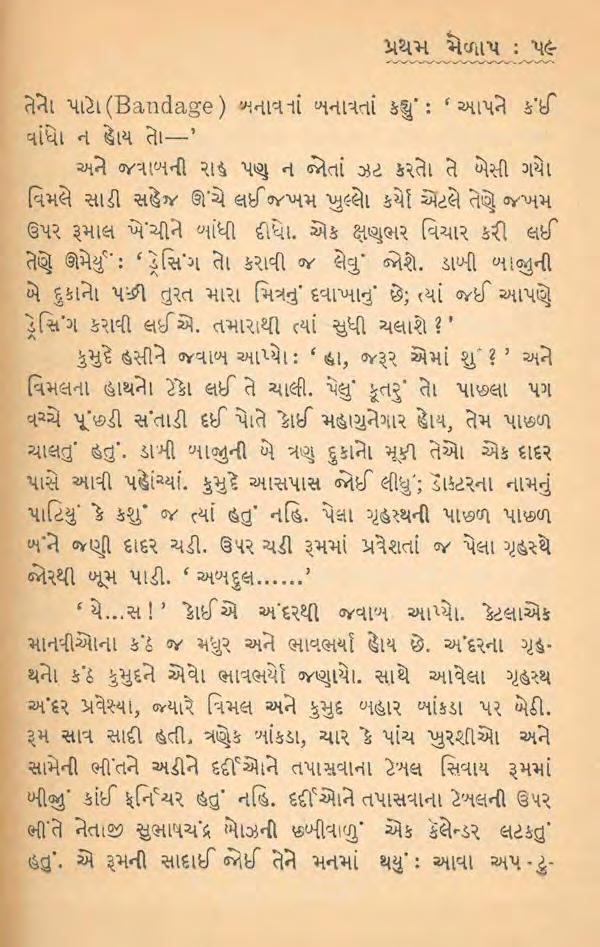 પ્રથમ મેળાપ : ૫૯
તેનો પાટો(Bandage) બનાવતાં બનાવતાં કહ્યું : ‘ આપને કંઈ
વાંધો ન હોય તો—’
અને જવાબની રાહ પણ ન જોતાં ઝટ કરતો તે બેસી ગયો
વિમલે સાડી સહેજ ઊંચે લઈ જખમ ખુલ્લો કર્યો એટલે તેણે જખમ
ઉપર રૂમાલ ખેંચીને બાંધી દીધો. એક ક્ષણભર વિચાર કરી લઈ
તેણે ઊમેર્યું : ‘ ડ્રેસિંગ તો કરાવી જ લેવું જોશે. ડાબી બાજુની
બે દુકાનો પછી તુરત મારા મિત્રનું દવાખાનું છે; ત્યાં જઈ આપણે
ડ્રેસિંગ કરાવી લઈએ. તમારાથી ત્યાં સુધી ચલાશે ? ’
કુમુદે હસીને જવાબ આપ્યો : ‘ હા, જરૂર એમાં શું ? ’ અને
વિમલના હાથનો ટેકો લઈ તે ચાલી. પેલું કૂતરું તો પાછલા પગ
વચ્ચે પૂંછડી સંતાડી દઈ પોતે કોઈ મહાગુનેગાર હોય, તેમ પાછળ
ચાલતું હતું. ડાબી બાજુની બે ત્રણ દુકાનો મૂકી તેઓ એક દાદર
પાસે આવી પહોંચ્યાં. કુમુદે આસપાસ જોઈ લીધું; ડૉક્ટરના નામનું
પાટિયું કે કશું જ ત્યાં હતું નહિ. પેલા ગૃહસ્થની પાછળ પાછળ
બંને જણી દાદર ચડી. ઉપર ચડી રૂમમાં પ્રવેશતાં જ પેલા ગૃહસ્થે
જોરથી બૂમ પાડી. ‘ અબદુલ......’
‘ યે...સ ! ’ કોઈએ અંદરથી જવાબ આપ્યો. કેટલાએક
માનવીઓના કંઠ જ મધુર અને ભાવભર્યા હોય છે. અંદરના ગૃહ-
થનો કંઠ કુમુદને એવો ભાવભર્યો જણાયો. સાથે આવેલા ગૃહસ્થ
અંદર પ્રવેસ્યા, જ્યારે વિમલ અને કુમુદ બહાર બાંકડા પર બેઠી.
રૂમ સાવ સાદી હતી. ત્રણેક બાંકડા, ચાર કે પાંચ ખુરશીઓ અને
સામેની ભીંતને અડીને દર્દીઓને તપાસવાના ટેબલ સિવાય રૂમમાં
બીજું કાંઈ ફર્નિચર હતું નહિ. દર્દીઓને તપાસવાના ટેબલની ઉપર
ભીંતે નેતાજી સુભાષચંદ્ર બોઝની છબીવાળું એક કૅલેન્ડર લટકતું
હતું. એ રૂમની સાદાઈ જોઈ તેને મનમાં થયું : આવા અપ-ટુ-